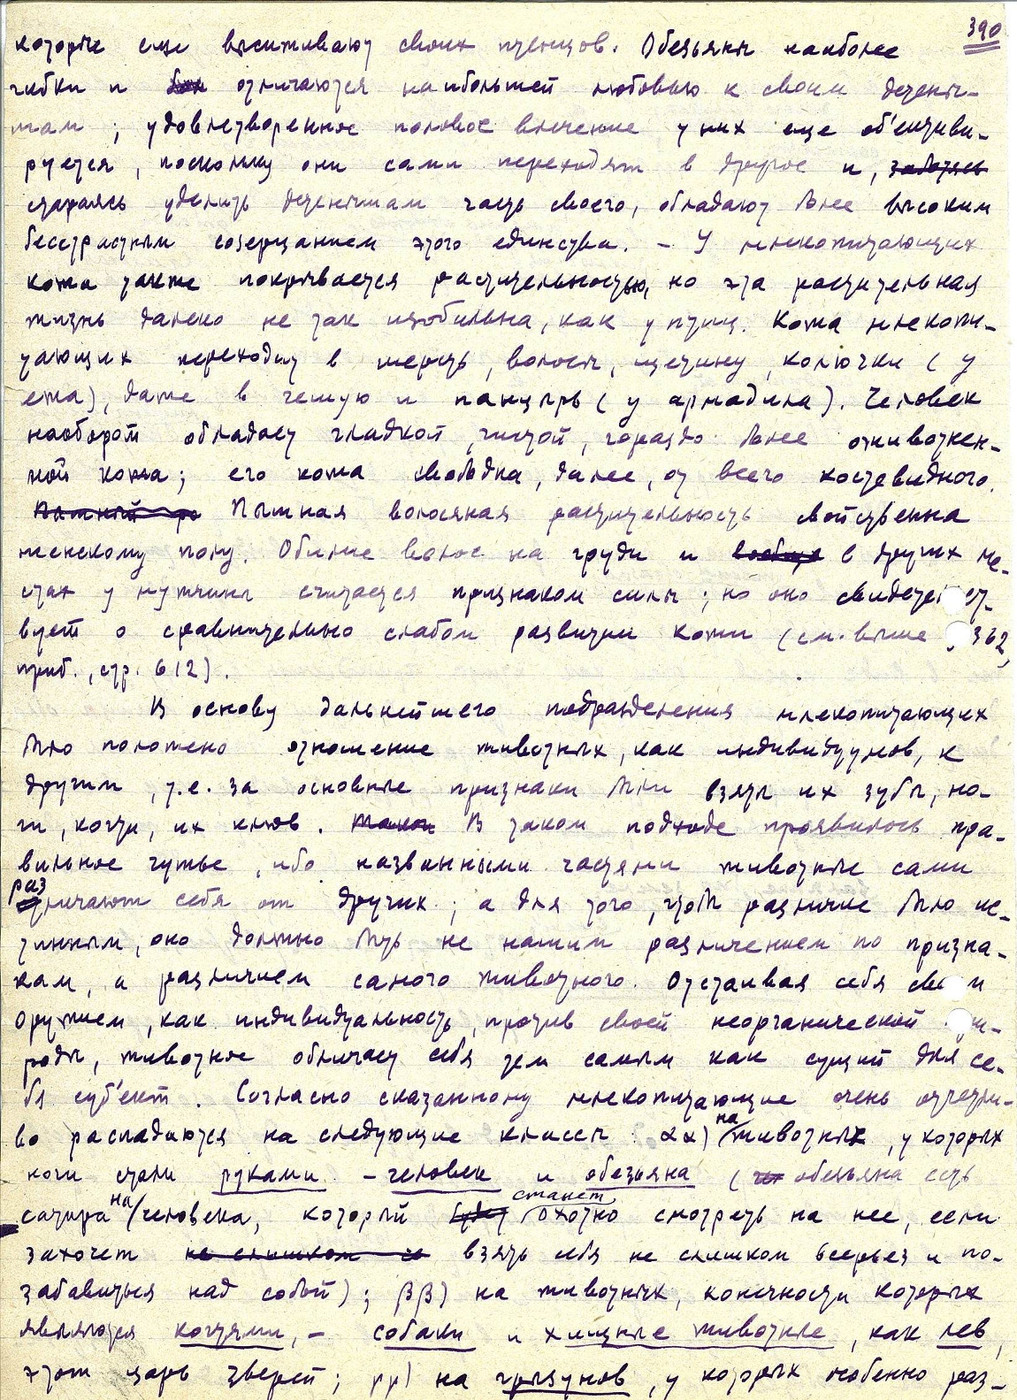 390
которые еще высиживают своих птенцов. Обезьяны наиболее
гибки и отличаются наибольшей любовью к своим детены-
шам; удовлетворенное половое влечение у них еще об'ективи-
руется, поскольку они сами переходят в другое и, заботясь
стараясь уделить детенышам часть своего, обладают более высоким
бесстрастным созерцанием этого единства. – У млекопитающих
кожа также покрывается растительностью, но эта растительная
жизнь далеко не так изобильна, как у птиц. Кожа млекопи-
тающих переходит в шерсть, волосы, щетину, колючки (у
ежа), даже в чешую и панцырь (у армадила). Человек
наоборот обладает гладкой, чистой, гораздо более оживотнен-
ной кожа; его кожа свободна, далее, от всего костевидного.
Пышный Пышная волосяная растительность свойственна
женскому полу. Обилие волос на груди и вообще в других ме-
стах у мужчины считается признаком силы; но оно свидетельст-
вует о сравнительно слабом развитии кожи (см. выше 362,
приб., стр. 612).
В основу дальнейшего подразделения млекопитающих
было положено отношение животных, как индивидуумов, к
другим, т.е. за основные признаки были взяты их зубы, но-
ги, когти, их клюв. Такой В таком подходе проявилось пра-
вильное чутье, ибо названными частями животные сами
различают себя от других; а для того, чтоб различие было ис-
тинным, оно должно быть не нашим различением по призна-
кам, а различием самого животного. Отстаивая себя своим
оружием, как индивидуальность, против своей неорганической при-
роды, животное обличает себя тем самым как сущий для се-
бя суб'ект. Согласно сказанному млекопитающие очень отчетли-
во распадаются на следующие классы: αα) на животных, у которых
ноги стали руками – человек и обезьяна (обезьяна есть
сатира на человека, который будет станет охотно смотреть на нее, если
захочет не слишком взять себя не слишком всерьез и по-
забавиться над собой); ββ) на животных, конечности которых
являются когтями, – собаки и хищные животные, как лев,
этот царь зверей; γγ) на грызунов, у которых особенно раз-